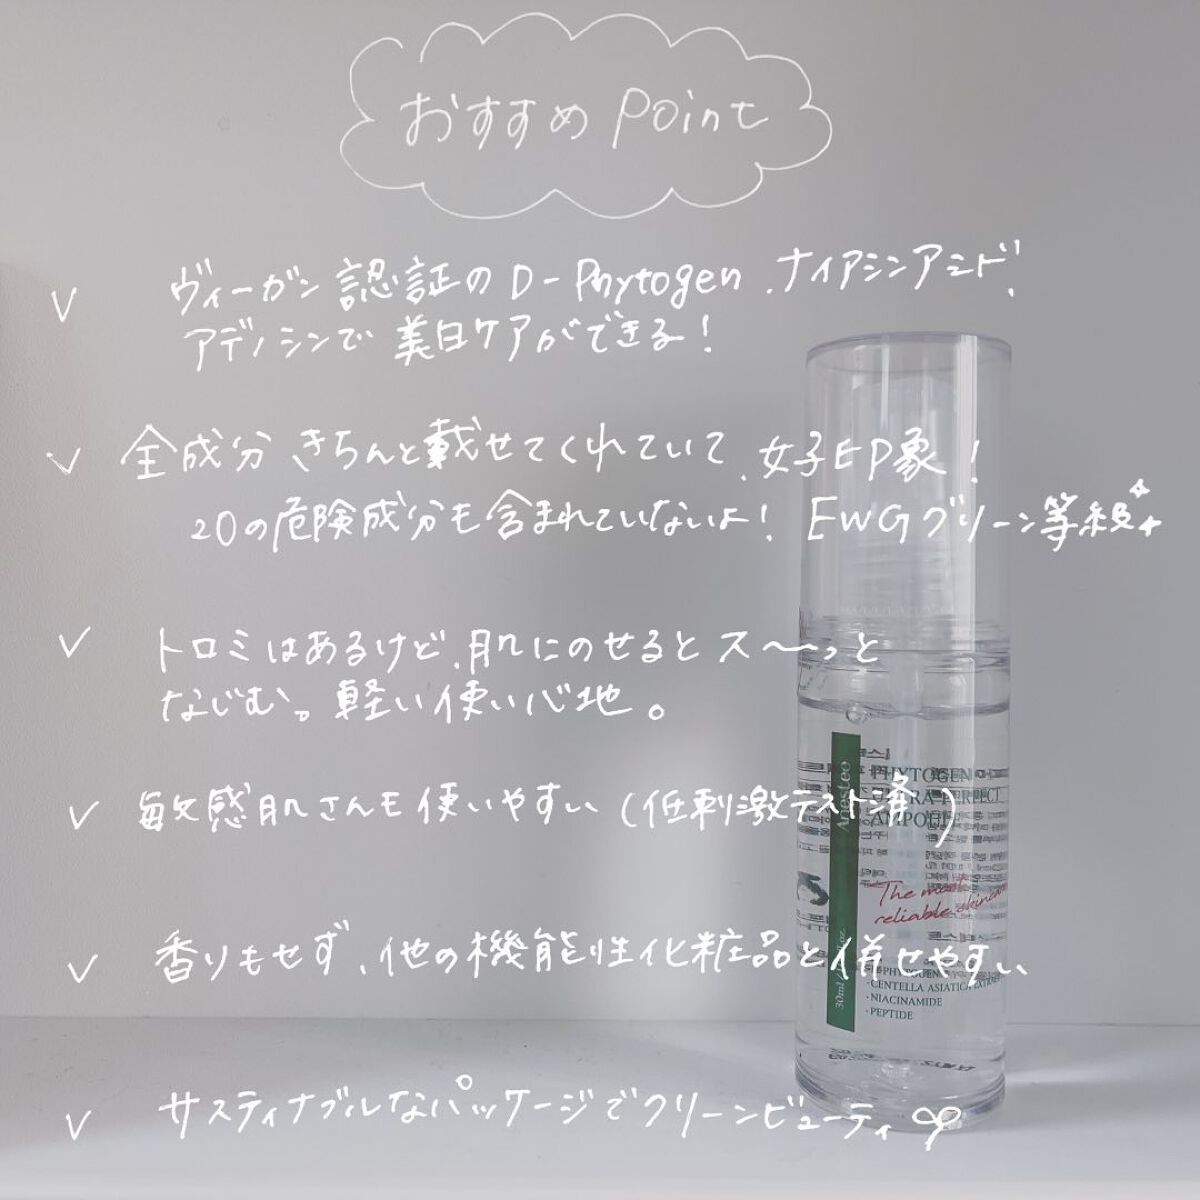 おすすめ Point
✓ ヴィーガン認証のD-Phytogen、ナイアシンアミド、
アデノシンで美白ケアができる！
✓ 全成分きちんと載せてくれていて、女子印象！
20の危険成分も含まれていないよ！ EWGグリーン等級
✓ トロミはあるけど、肌にのせるとス〜っと
なじむ。軽い使い心地。
✓ 敏感肌さんも使いやすい（低刺激テスト済）
✓ 香りもせず、他の機能性化粧品と併せやすい
✓ サスティナブルなパッケージでクリーンビューティ
Anestee
PHYTOGEN
ULTRA PERFECT
AMPOULE
The most
reliable skincare
30ml
PHYTOGEN
·CENTELLA ASIATICA EXTRACT
·NIACINAMIDE
·PEPTIDE